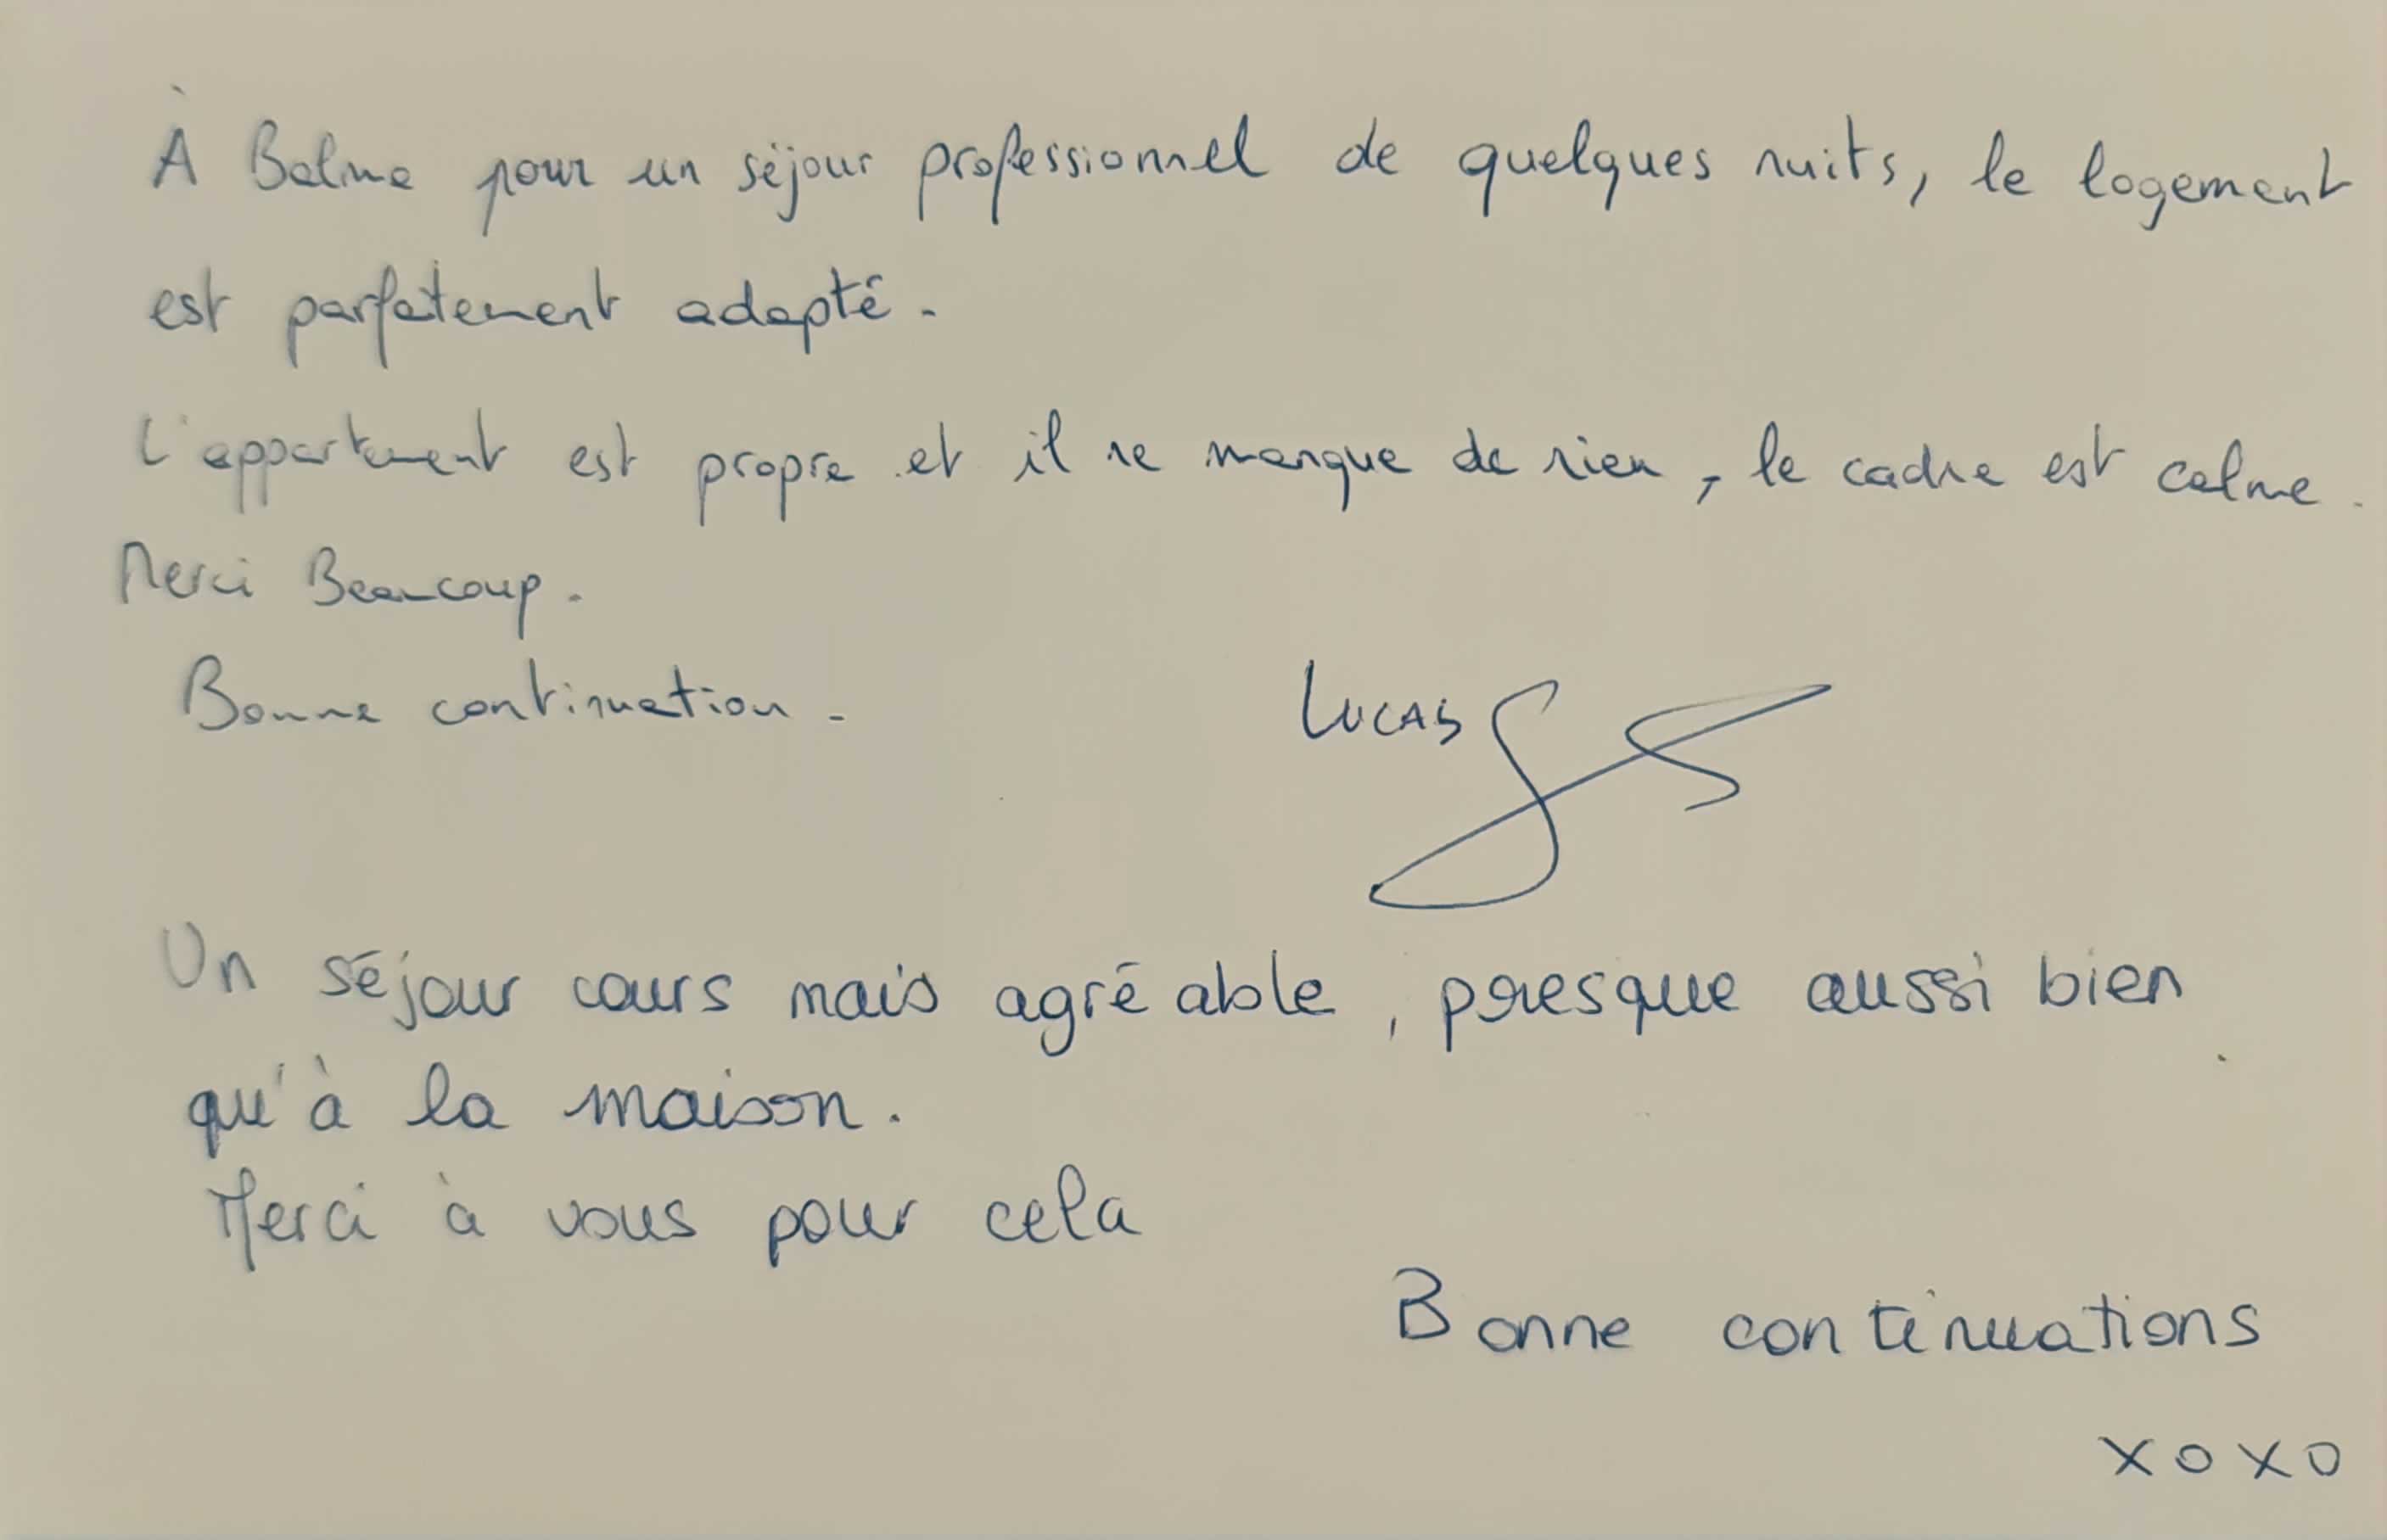 À Balma pour un séjour professionnel de quelques nuits, le logement
est parfaitement adapté.
L'appartement est propre et il ne manque de rien, le cadre est calme.
Merci Beaucoup.
Bonne continuation.
LUCAS
Un séjour cours mais agréable, presque aussi bien
qu'à la maison.
Merci à vous pour cela
Bonne continuations
xoxo